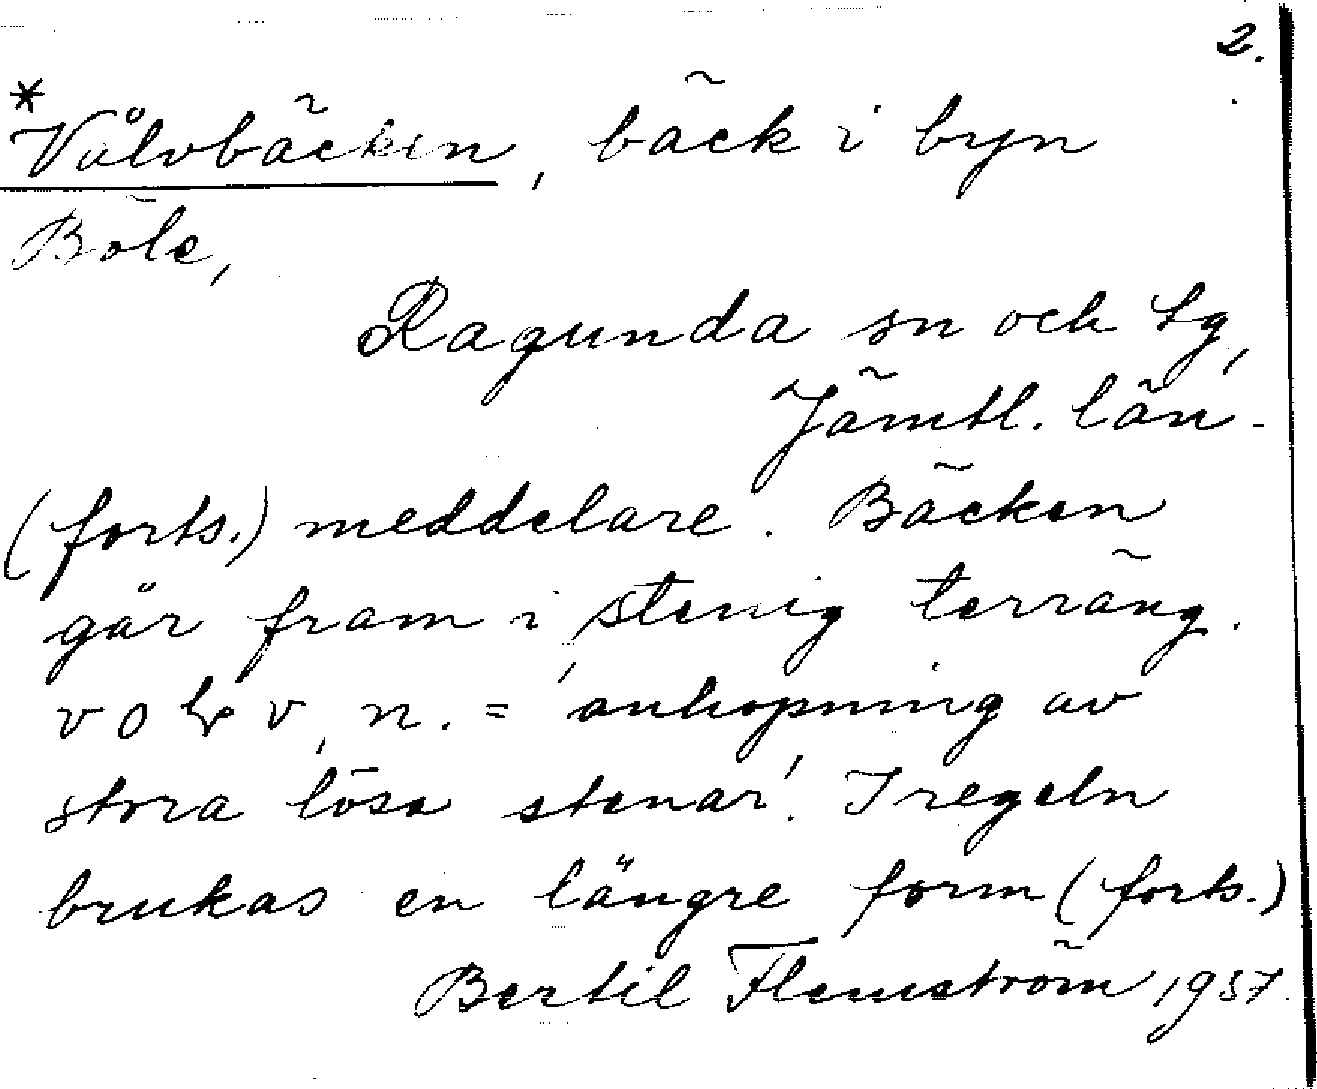 2.
*Vålvbäcken, bäck i byn
Böle,
Ragunda sn och tg,
Jämtl. län.
(forts.) meddelare. Bäcken
går fram i stenig terräng.
v, n. = 'anhopning av
stora lösa stenar'. I regeln
brukas en längre form (forts.)
Bertil Flemström 1957.